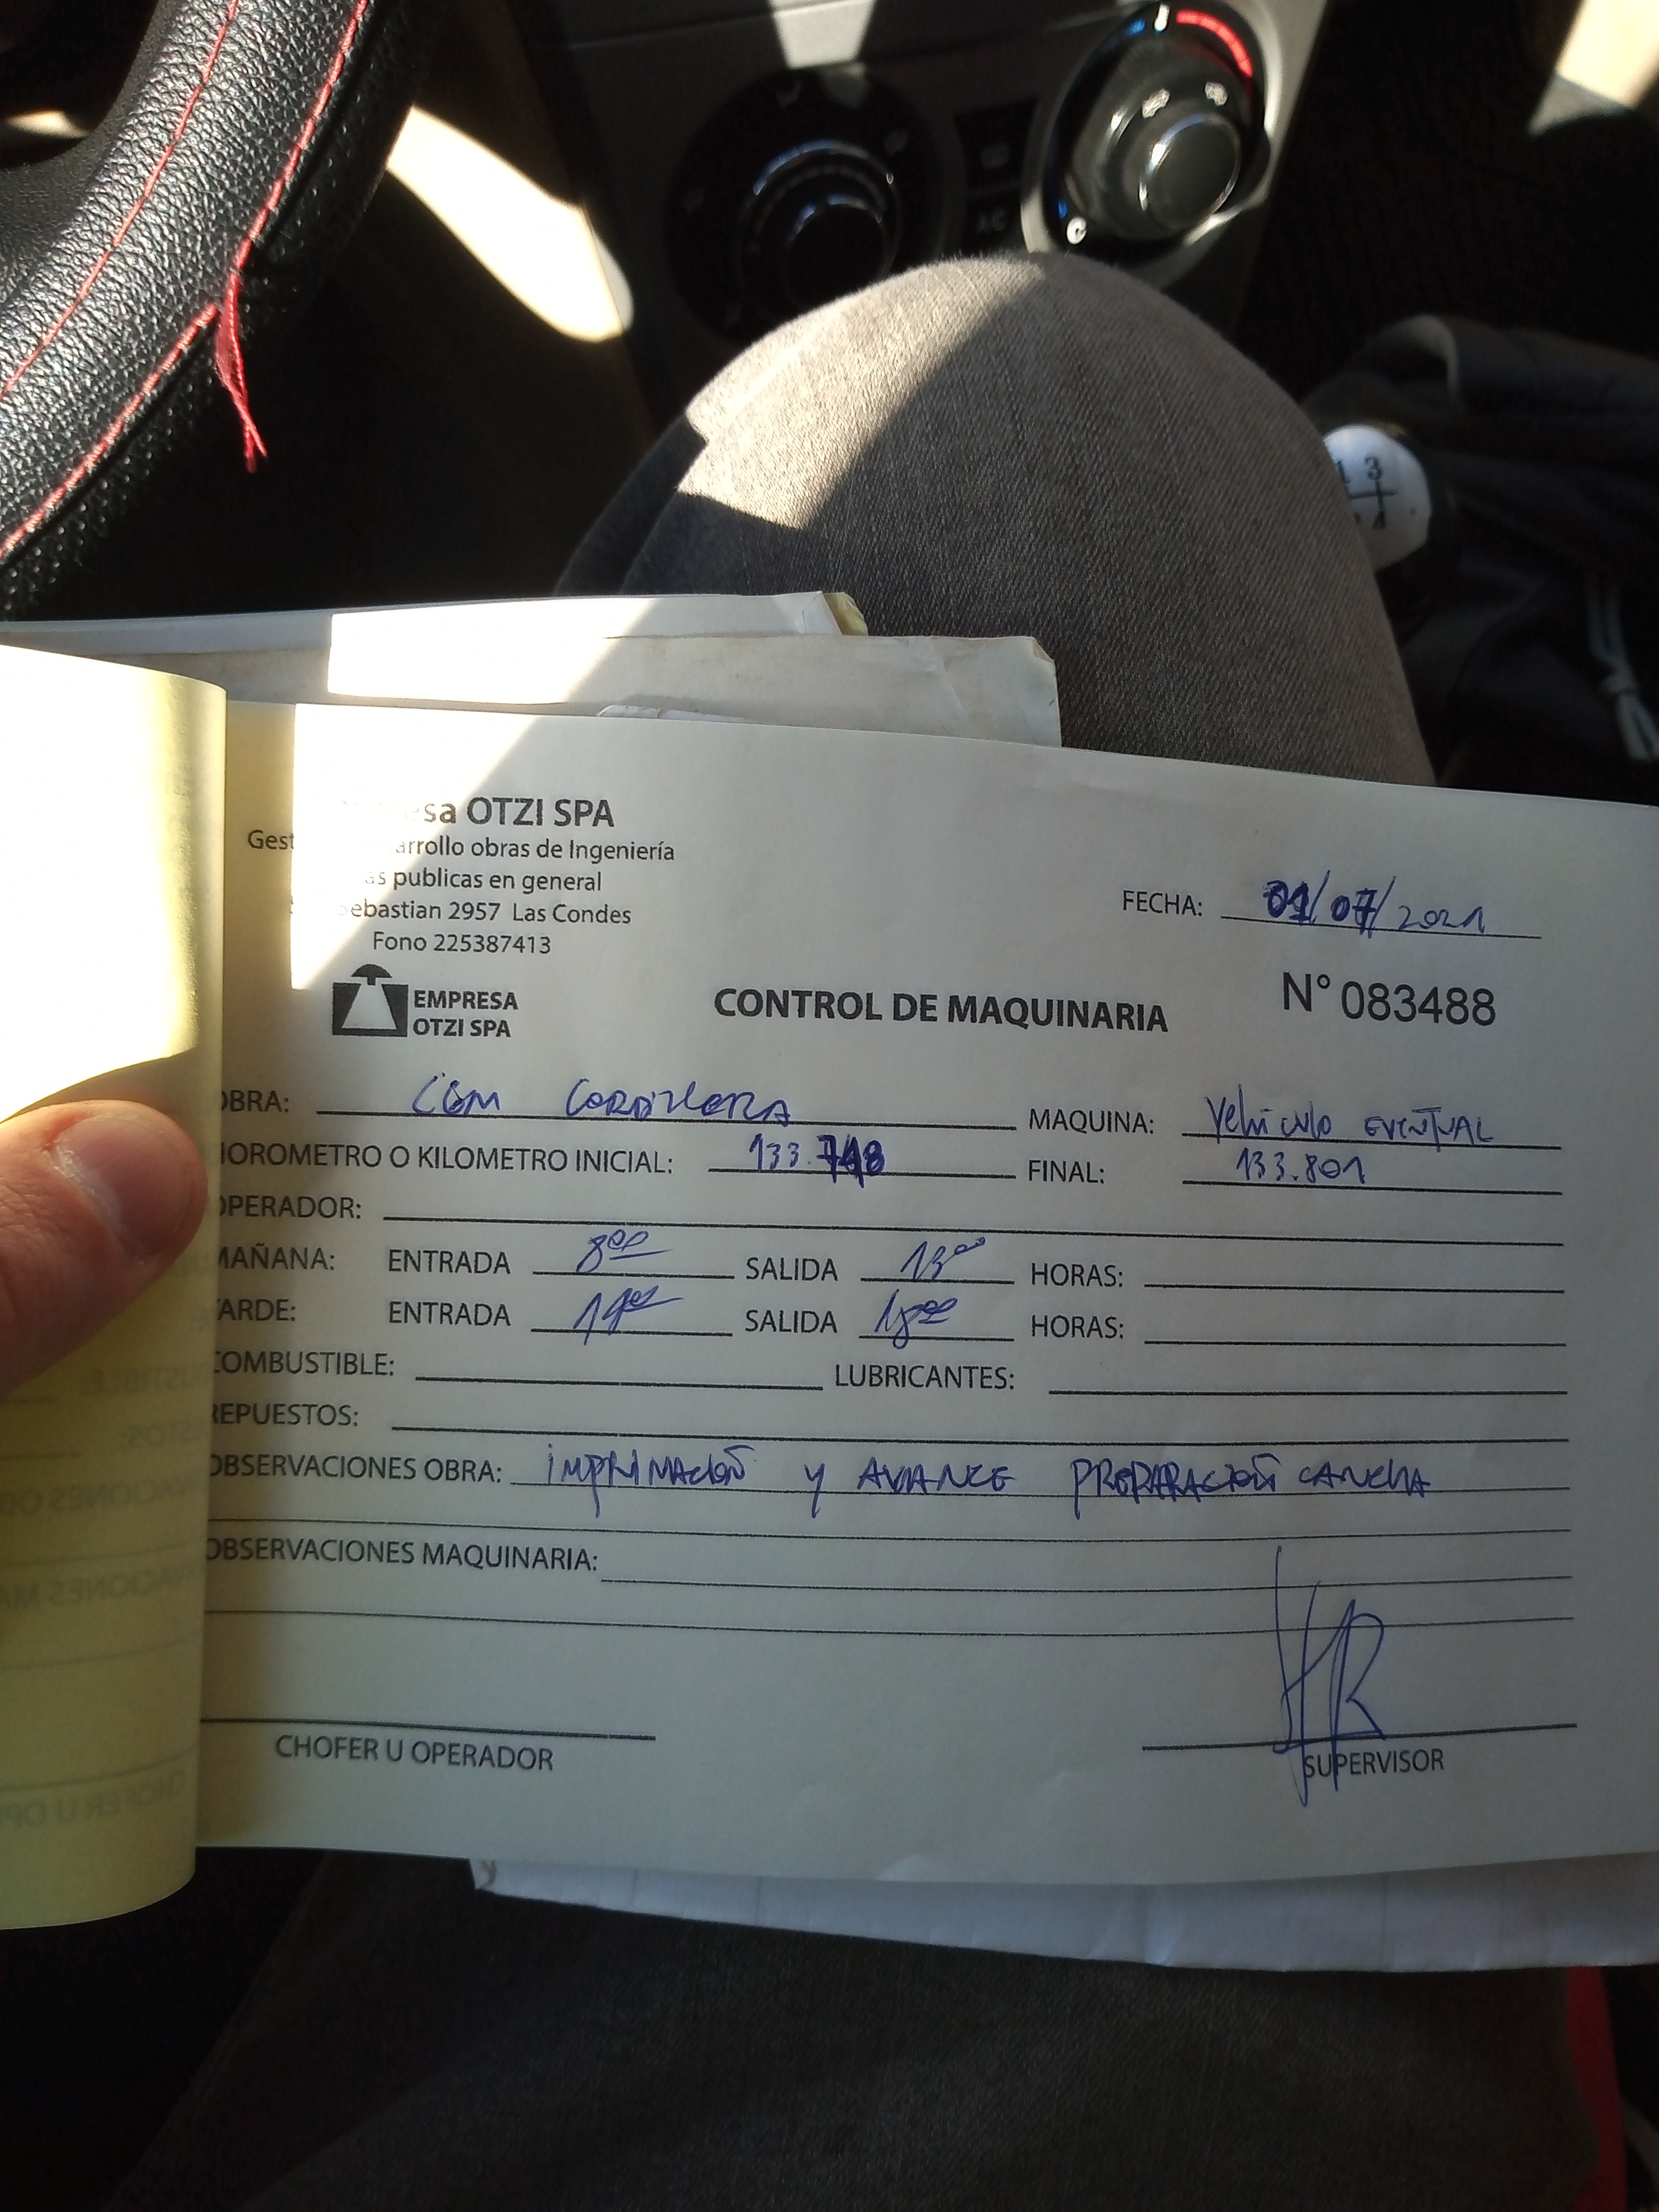 esa OTZI SPA
Gest arrollo obras de Ingeniería
as publicas en general
ebastian 2957 Las Condes
Fono 225387413
EMPRESA
OTZI SPA
FECHA: 01/07/2021
CONTROL DE MAQUINARIA
N° 083488
OBRA: CGM CORDILLERA MAQUINA: Vehiculo EVENTUAL
HOROMETRO O KILOMETRO INICIAL: 133.748 FINAL: 133.801
OPERADOR:
MAÑANA: ENTRADA 8:00 SALIDA 13:00 HORAS:
TARDE: ENTRADA 14:00 SALIDA 18:00 HORAS:
COMBUSTIBLE: LUBRICANTES:
REPUESTOS:
OBSERVACIONES OBRA: IMPRIMACIÓN Y AVANCE PREPARACIÓN CANCHA
OBSERVACIONES MAQUINARIA:
CHOFER U OPERADOR
SUPERVISOR
AC
1 3
4